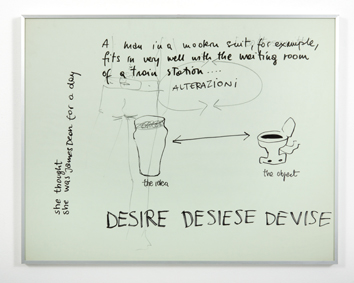 A man in a modern suit, for example,
fits in very well with the waiting room
of a train station....
ALTERAZIONI
she thought
she was James Dean for a day
the idea
the object
DESIRE DESIESE DEVISE